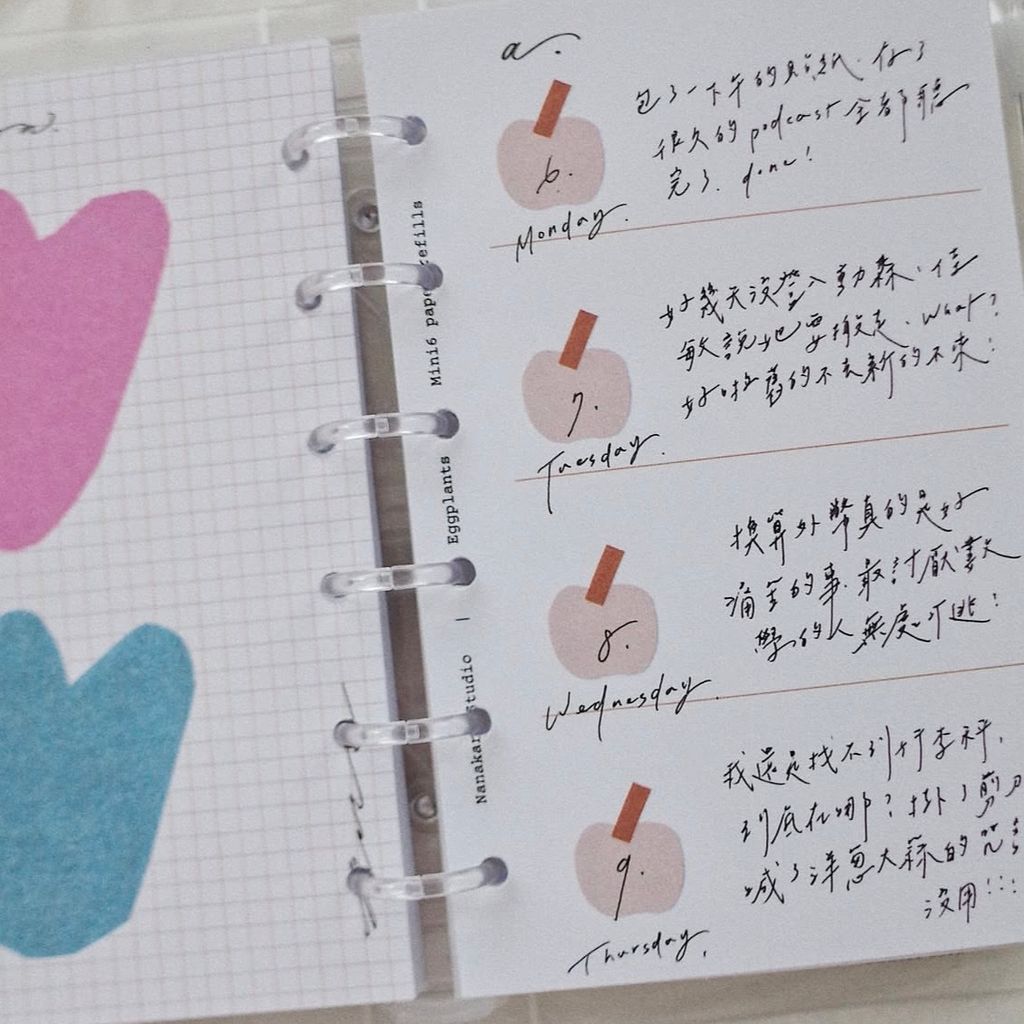 a.
6.
Monday.
包了一下午的貼紙.存了
很久的podcast全都聽
完了.done!
7.
Tuesday.
好幾天沒登入動森.佳
敏說她要搬走.what?
好啦舊的不去新的不來!
8.
Wednesday.
換算外幣真的是好
痛苦的事.最討厭數
學的人無處可逃!
9.
Thursday.
我還是找不到
到底在哪?掛了剪刀
喊了洋蔥大蒜的咒
沒用!!!
Mini6 paper refills
Eggplants
|
Nanakar Studio